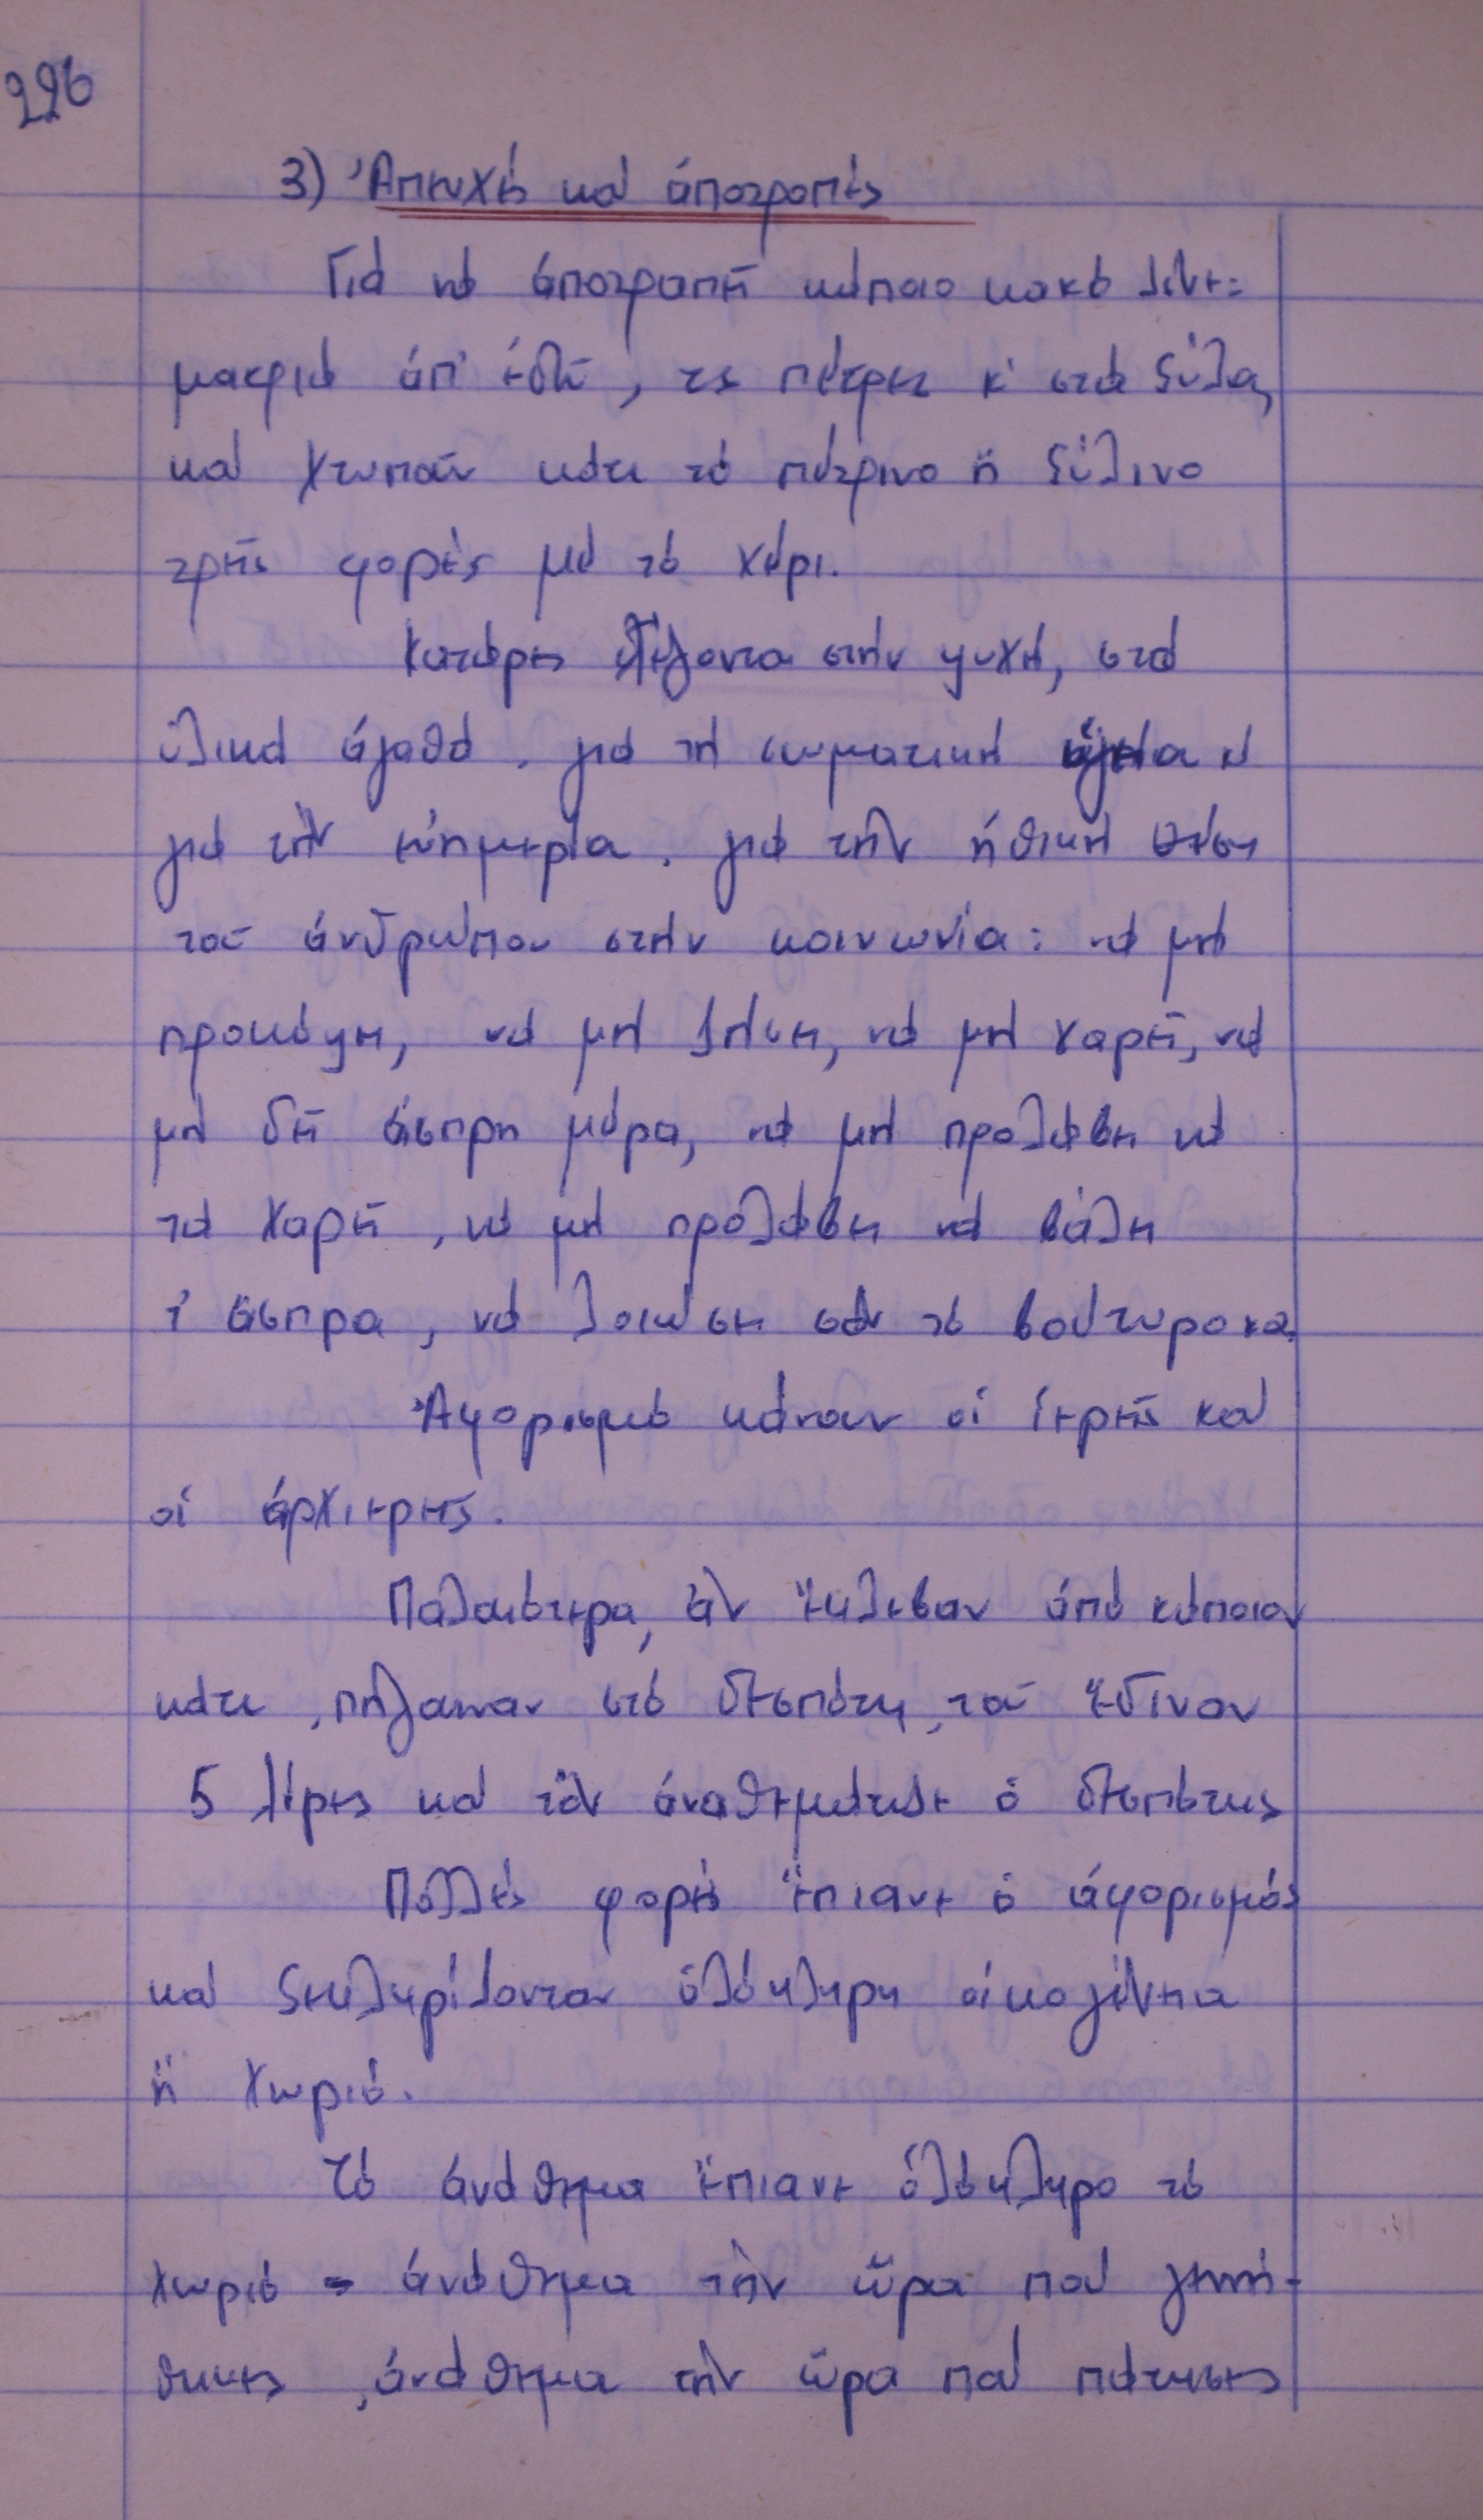 226
3) Ἀπευχές καί ἀποτροπές
Γιά νά ἀποτραπῆ κάποιο κακό λένε:
μακριά ἀπ' ἐδῶ, τς πέτρες κ' στά ξύλα,
καί χτυπᾶν κάτι τό πέτρινο ἤ ξύλινο
τρεῖς φορές μέ τό χέρι.
Κατάρες στέλονται στήν ψυχή, στά
ὑλικά ἀγαθά, γιά τή σωματική ὑγεία κ
γιά τήν εὐημερία, γιά τήν ἠθική θέση
τοῦ ἀνθρώπου στήν κοινωνία: νά μή
προκόψη, νά μή ζήση, νά μή χαρῆ, νά
μή δῆ ἄσπρη μέρα, νά μή προλάβη νά
τά χαρῆ, νά μή προλάβη νά βάλη
τ' ἄσπρα, νά λοιώση σάν τό βούτυρο κα.
Ἀφορισμό κάνουν οἱ ἱερεῖς καί
οἱ ἀρχιερεῖς.
Παλαιότερα, ἄν ἔκλεβαν ἀπό κάποιον
κάτι, πήγαιναν στό δεσπότη, τοῦ ἔδιναν
5 λίρες καί τόν ἀναθεμάτιζε ὁ δεσπότης
Πολλές φορές ἔπιανε ὁ ἀφορισμός
καί ξεκληρίζονταν ὁλόκληρη οἰκογένεια
ἤ χωριό.
Τό ἀνάθεμα ἔπιανε ὁλόκληρο τό
χωριό = ἀνάθεμα τήν ὥρα πού γεννή-
θηκες, ἀνάθεμα τήν ὥρα πού πάτησες